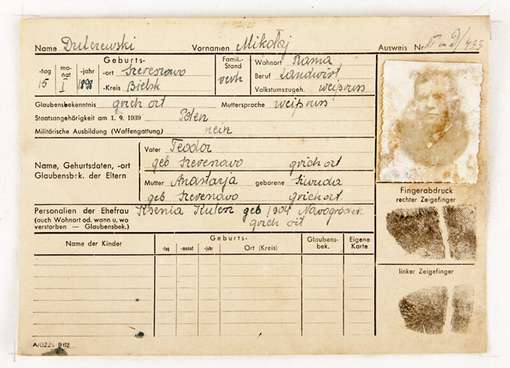 Name Vornamen Mikołaj Ausweis Nr.
Geburts- Famil.- Wohnort Rama
-tag mo-nat -jahr -ort Szereszowo Stand Beruf Landwirt
15 I 1898 -Kreis Bielsk verh Volkstumszugeh. weißruss
Glaubensbekenntnis griech ort Muttersprache weißruss
Staatsangehörigkeit am 1. 9. 1939 Polen
Militärische Ausbildung (Waffengattung) nein
Name, Geburtsdaten, -ort
Glaubensbk. der Eltern
Vater Teodor
geb griech ort
Mutter Anastazja geborene
geb griech ort
Personalien der Ehefrau Ksenia geb 1904
(auch Wohnort od. wann u. wo
verstorben — Glaubensbek.) griech ort
Name der Kinder Geburts- Glaubens-bek. Eigene Karte
-tag -monat -jahr Ort (Kreis)
Fingerabdruck
rechter Zeigefinger
linker Zeigefinger